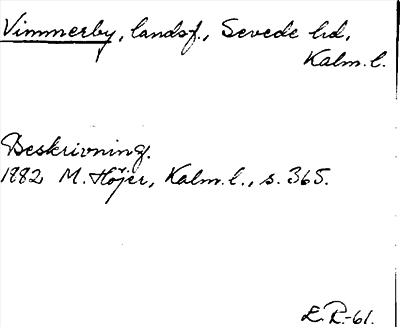 Vimmerby, landsf., Sevede hd,
Kalm. l.
Beskrivning.
1882 M. Höjer, Kalm. l., s. 365.
L. R.-61.